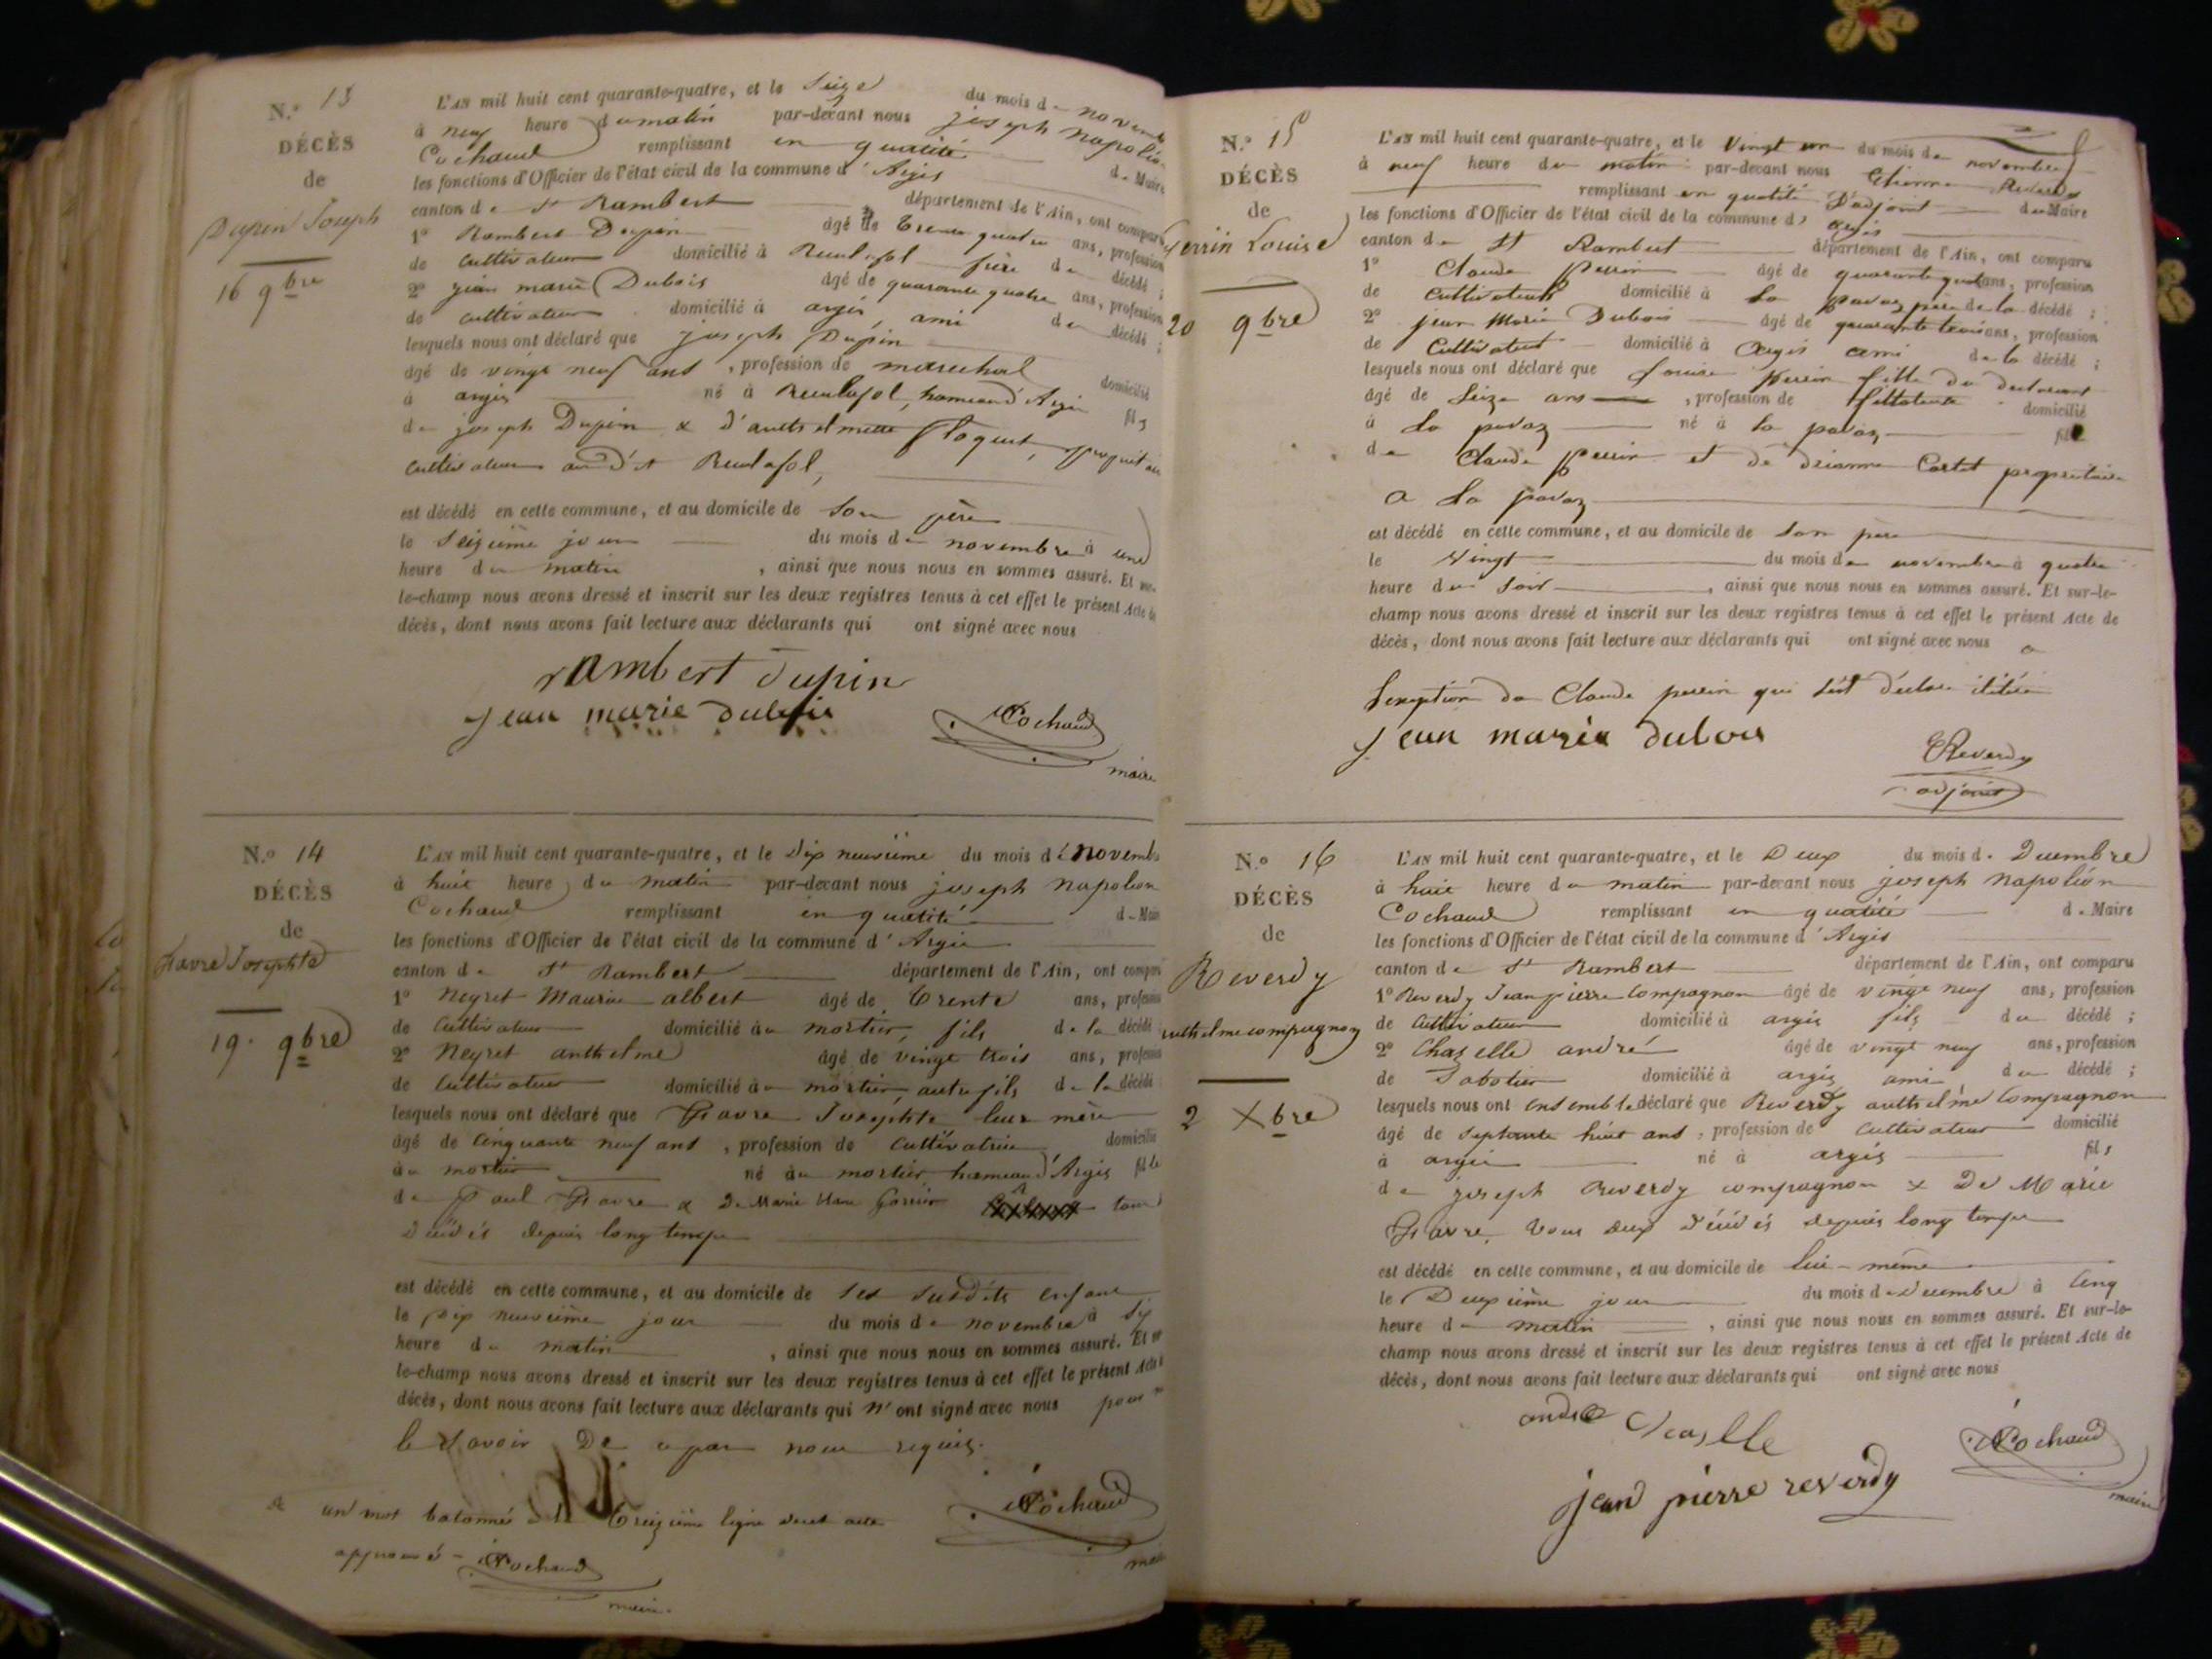 N.o 13
DÉCÈS
de
Dupin Joseph
16 9bre
L'AN mil huit cent quarante-quatre, et le Seize du mois de novemb
à neuf heure du matin par-devant nous joseph Napoléon
Cochaud remplissant en qualité de Maire
les fonctions d'Officier de l'état civil de la commune d'Argis
canton de St Rambert département de l'Ain, ont comparu
1o Rambert Dupin âgé de trente quatre ans, profession
de cultivateur domicilié à Reculafol frère du décédé ;
2o jean marie Dubois âgé de quarante quatre ans, profession
de cultivateur domicilié à argis, ami du décédé ;
lesquels nous ont déclaré que joseph Dupin
âgé de vingt neuf ans, profession de marechal domicilié
à argis né à Reculafol, hameau d'Argis fils
de joseph Dupin & d'anthelmette
cultivateur audit Reculafol,
est décédé en cette commune, et au domicile de son père
le Seizième jour du mois de novembre à une
heure du matin, ainsi que nous nous en sommes assuré. Et sur-
le-champ nous avons dressé et inscrit sur les deux registres tenus à cet effet le présent Acte de
décès, dont nous avons fait lecture aux déclarants qui ont signé avec nous
rambert dupin
jean marie dubois
Cochaud
maire
N.o 14
DÉCÈS
de
Favre Josephte
19. 9bre
L'AN mil huit cent quarante-quatre, et le Dix neuvième du mois de Novemb
à huit heure du matin par-devant nous joseph napoléon
Cochaud remplissant en qualité de Mair
les fonctions d'Officier de l'état civil de la commune d'Argis
canton de St Rambert département de l'Ain, ont compar
1o Neyret Maurice albert âgé de trente ans, profession
de Cultivateur domicilié au mortier, fils de la décédé
2o Neyret anthelme âgé de vingt trois ans, profession
de Cultivateur domicilié au mortier, autre fils de la décédé
lesquels nous ont déclaré que Favre Josephte leur mère
âgé de Cinquante neuf ans, profession de Cultivatrice domicilié
au mortier né au mortier hameau d'Argis fille
de Paul Favre & De Marie tous
Décédés depuis long temps
est décédé en cette commune, et au domicile de ses susdits enfans
le Dix neuvième jour du mois de novembre à Six
heure du matin, ainsi que nous nous en sommes assuré. Et sur-
le-champ nous avons dressé et inscrit sur les deux registres tenus à cet effet le présent Acte
décès, dont nous avons fait lecture aux déclarants qui n'ont signé avec nous pour ne
le savoir De ce par nous requis.
un mot batonné à la treizième ligne du cet acte
approuvé - Cochaud
maire
Cochaud
maire
N.o 15
DÉCÈS
de
Perrin Louise
20 9bre
L'AN mil huit cent quarante-quatre, et le Vingt un du mois de novembre
à neuf heure du matin par-devant nous Etienne Reverdy
remplissant en qualité D'adjoint du Maire
les fonctions d'Officier de l'état civil de la commune d' Argis
canton de St Rambert département de l'Ain, ont comparu
1o Claude Perrin âgé de quarante quat ans, profession
de Cultivateur domicilié à La pavaz père de la décédé ;
2o jean Marie Dubois âgé de quarante trois ans, profession
de Cultivateur domicilié à Argis ami de la décédé ;
lesquels nous ont déclaré que Louise Perrin fille du declarant
âgé de Seize ans, profession de domicilié
à La pavaz né à la pavaz fille
de Claude Perrin et de Cartet proprietaire
a La pavaz
est décédé en cette commune, et au domicile de Son père
le Vingt du mois de novembre à quatre
heure du Soir, ainsi que nous nous en sommes assuré. Et sur-le-
champ nous avons dressé et inscrit sur les deux registres tenus à cet effet le présent Acte de
décès, dont nous avons fait lecture aux déclarants qui ont signé avec nous a
L'exeption de Claude perrin qui
jean marie dubois
Reverdy
adjoint
N.o 16
DÉCÈS
de
Reverdy
anthelme compagnon
2 Xbre
L'AN mil huit cent quarante-quatre, et le Deux du mois de Decembre
à huit heure du matin par-devant nous joseph Napoléon
Cochaud remplissant en qualité de Maire
les fonctions d'Officier de l'état civil de la commune d'Argis
canton de St Rambert département de l'Ain, ont comparu
1o Reverdy Jean pierre Compagnon âgé de vingt neuf ans, profession
de Cultivateur domicilié à argis fils du décédé ;
2o Chazelle andré âgé de vingt neuf ans, profession
de Sabotier domicilié à argis ami du décédé ;
lesquels nous ont ensemble déclaré que Reverdy anthelme Compagnon
âgé de septante huit ans, profession de Cultivateur domicilié
à argis né à argis fils
de joseph Reverdy compagnon & De Marie
Favre, tous deux décédés depuis long temps
est décédé en cette commune, et au domicile de lui-même
le Deuxième jour du mois de decembre à Cinq
heure du matin, ainsi que nous nous en sommes assuré. Et sur-le-
champ nous avons dressé et inscrit sur les deux registres tenus à cet effet le présent Acte de
décès, dont nous avons fait lecture aux déclarants qui ont signé avec nous
jean pierre reverdy
Cochaud
maire